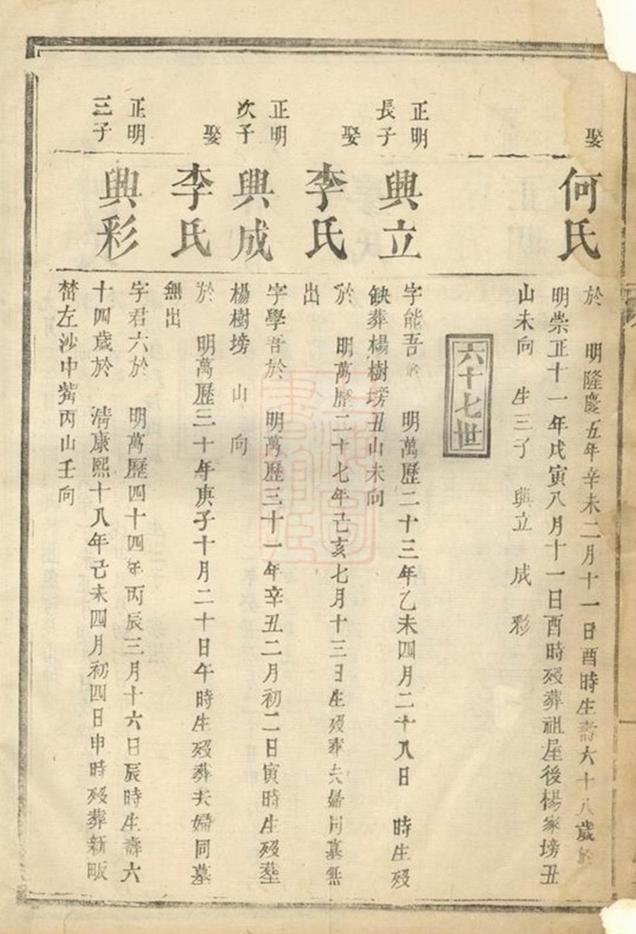 娶
何氏
於　明隆慶五年辛未二月十一日酉時生壽六十八歲於
明崇正十一年戊寅八月十一日酉時歿葬祖屋後楊家塝丑
山未向　生三子　興立　成　彩
六十七世
正明
長子
興立
字能吾於　明萬歷二十三年乙未四月二十八日　時生歿
缺葬楊樹塝丑山未向
娶
李氏
於　明萬歷二十七年己亥七月十三日生歿葬夫婦同墓無
出
正明
次子
興成
字學吾於　明萬歷三十一年辛丑二月初二日寅時生歿葬
楊樹塝　山　向
娶
李氏
於　明萬歷三十年庚子十月二十日午時生歿葬夫婦同墓
無出
正明
三子
興彩
字君六於　明萬歷四十四年丙辰三月十六日辰時生壽六
十四歲於　清康熙十八年己未四月初四日申時歿葬新畈
塋左沙中嘴丙山壬向